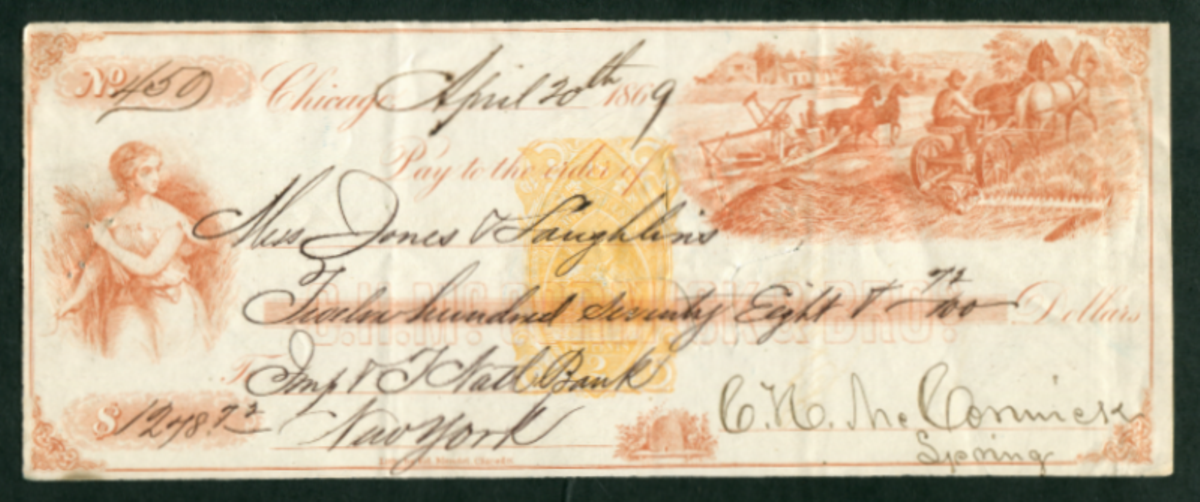 No 450 Chicago April 20th 1869
Pay to the order of
Mess Jones & Laughlins
C.H. McCORMICK & BRO.
Twelve hundred seventy Eight & 72/100 Dollars
To Imp & T Natl Bank
$1278.72 New York
C. H. McCormick
Spring